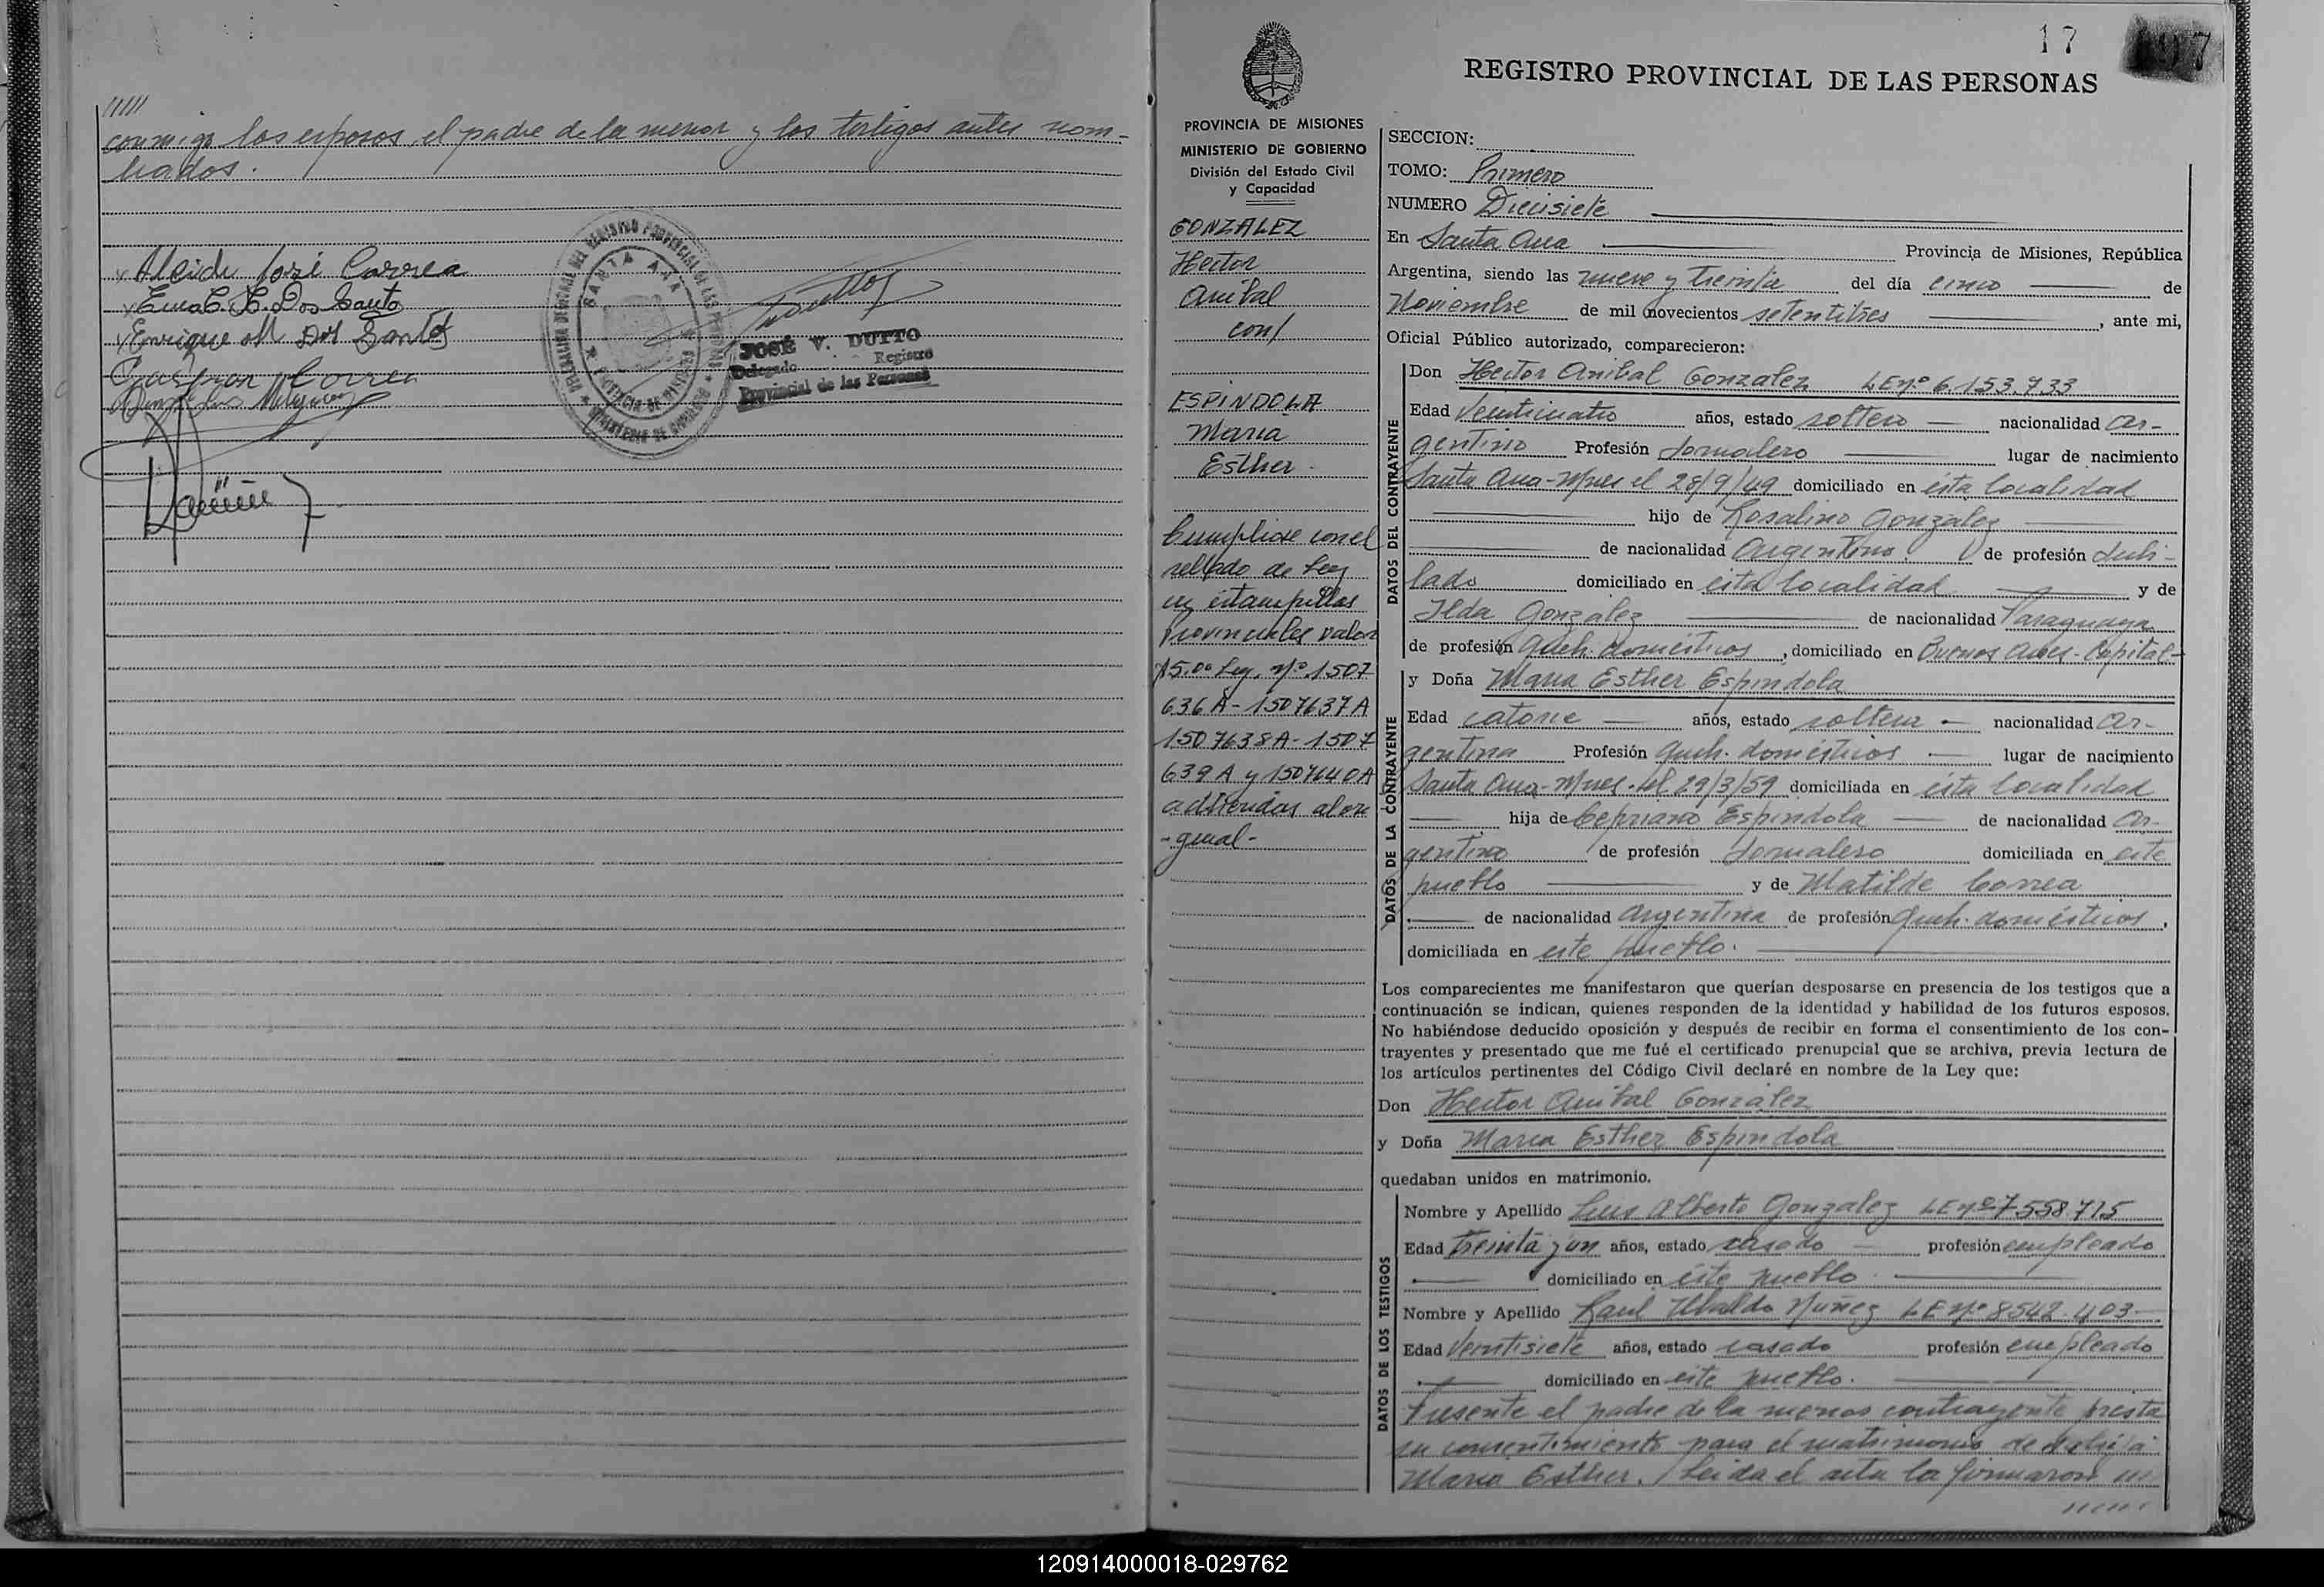 /////
conmigo los esposos, el padre de la menor y los testigos antes nom-
brados.
Alcide José Correa
Ema C. E. Dos Santo
Enrique M Dos Santos
Gaspar Correa
REGISTRO PROVINCIAL DE LAS PERSONAS
SANTA ANA
PROVINCIA DE MISIONES
MINISTERIO DE GOBIERNO
JOSÉ V. DUTTO
Delegado Registro
Provincial de las Personas
17
REGISTRO PROVINCIAL DE LAS PERSONAS
PROVINCIA DE MISIONES
MINISTERIO DE GOBIERNO
División del Estado Civil
y Capacidad
GONZALEZ
Hector
Anibal
con/
ESPINDOLA
Maria
Esther -
Cumplióse con el
sellado de Ley
en estampillas
provinciales valor
15.00 Ley. Nº 1507
636 A - 1507637 A
1507638 A - 1507
639 A y 1507640 A
adheridas al ori
- ginal -
SECCION:
TOMO: Primero
NUMERO Diecisiete
En Santa Ana Provincia de Misiones, República
Argentina, siendo las nueve y treinta del día cinco de
Noviembre de mil novecientos setentitres, ante mi,
Oficial Público autorizado, comparecieron:
DATOS DEL CONTRAYENTE
Don Hector Anibal Gonzalez LE nº 6.153.733
Edad Veinticuatro años, estado soltero nacionalidad Ar-
gentino Profesión Jornalero lugar de nacimiento
Santa Ana-Mnes el 28/9/49 domiciliado en ésta localidad
hijo de Rosalino Gonzalez
de nacionalidad Argentino. de profesión Jubi-
lado domiciliado en esta localidad y de
Ilda Gonzalez de nacionalidad Paraguaya
de profesión Queh. domésticos, domiciliado en Buenos Aires-Capital-
DATOS DE LA CONTRAYENTE
y Doña Maria Esther Espindola
Edad catorce años, estado soltera - nacionalidad Ar-
gentina Profesión Queh. domésticos lugar de nacimiento
Santa Ana-Mnes. el 29/3/59 domiciliada en ésta localidad
hija de Cepriano Espindola de nacionalidad Ar-
gentino de profesión Jornalero domiciliada en este
pueblo y de Matilde Correa
de nacionalidad Argentina de profesión Queh. domésticos,
domiciliada en este pueblo.
Los comparecientes me manifestaron que querían desposarse en presencia de los testigos que a
continuación se indican, quienes responden de la identidad y habilidad de los futuros esposos.
No habiéndose deducido oposición y después de recibir en forma el consentimiento de los con-
trayentes y presentado que me fué el certificado prenupcial que se archiva, previa lectura de
los artículos pertinentes del Código Civil declaré en nombre de la Ley que:
Don Hector Anibal Gonzalez
y Doña Maria Esther Espindola
quedaban unidos en matrimonio.
DATOS DE LOS TESTIGOS
Nombre y Apellido Luis Alberto Gonzalez LE nº 7558.715
Edad Treinta y un años, estado casado profesión empleado
domiciliado en éste pueblo
Nombre y Apellido Raul Ubaldo Nuñez LE Nº 8542.403-
Edad Veintisiete años, estado casado profesión empleado
domiciliado en éste pueblo.
Presente el padre de la menor contrayente presta
su consentimiento para el matrimonio de su hija
Maria Esther. Leida el acta la firmaron
/////
120914000018-029762